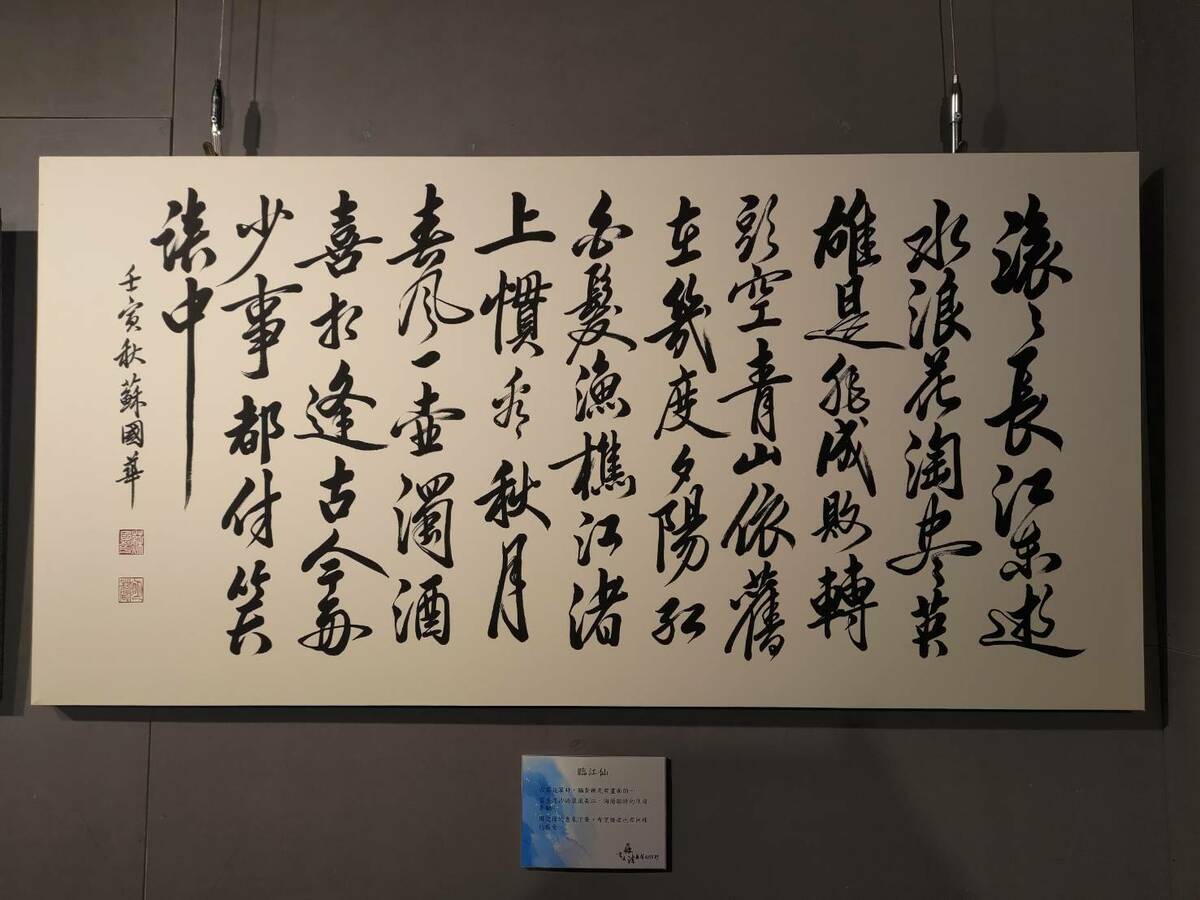 滾〻長江東逝
水浪花淘盡英
雄是非成敗轉
頭空青山依舊
在幾度夕陽紅
白髮漁樵江渚
上慣看秋月
春風一壺濁酒
喜相逢古今多
少事都付笑
談中
壬寅秋蘇國華
臨江仙